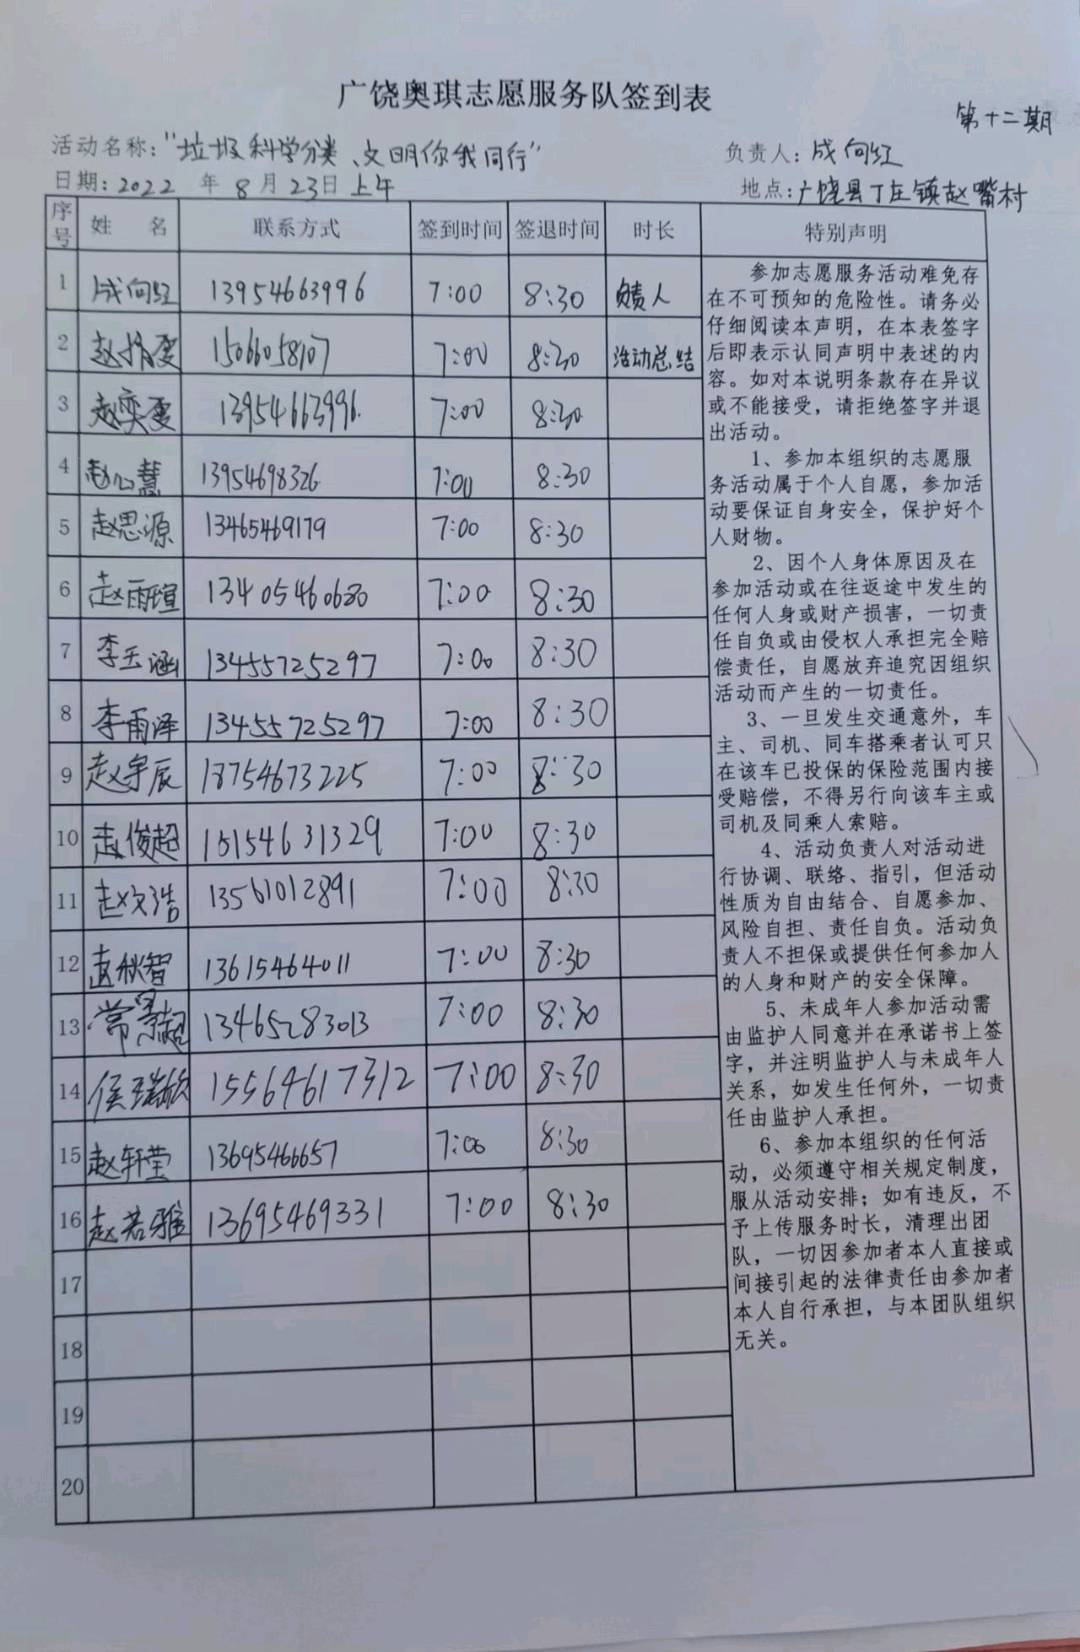 广饶奥琪志愿服务队签到表
第十二期
活动名称："垃圾科学分类、文明你我同行"
负责人：成向红
日期：2022 年 8 月 23 日 上午
地点：广饶县丁庄镇赵嘴村
序号 姓 名 联系方式 签到时间 签退时间 时长 特别声明
1 成向红 13954663996 7:00 8:30 负责人
2 赵 15066058107 7:00 8:30 活动总结
3 赵奕雯 13954663996 7:00 8:30
4 赵心慧 13954698326 7:00 8:30
5 赵思源 13465469179 7:00 8:30
6 赵雨瑄 13405460680 7:00 8:30
7 李玉涵 13455725297 7:00 8:30
8 李雨泽 13455725297 7:00 8:30
9 赵宇辰 18754673225 7:00 8:30
10 赵俊超 15154631329 7:00 8:30
11 赵文浩 13561012891 7:00 8:30
12 赵秋智 13615464011 7:00 8:30
13 常景超 13465283013 7:00 8:30
14 侯瑞欣 15564617312 7:00 8:30
15 赵轩莹 13695466657 7:00 8:30
16 赵若雅 13695469331 7:00 8:30
17
18
19
20
参加志愿服务活动难免存
在不可预知的危险性。请务必
仔细阅读本声明，在本表签字
后即表示认同声明中表述的内
容。如对本说明条款存在异议
或不能接受，请拒绝签字并退
出活动。
1、参加本组织的志愿服
务活动属于个人自愿，参加活
动要保证自身安全，保护好个
人财物。
2、因个人身体原因及在
参加活动或在往返途中发生的
任何人身或财产损害，一切责
任自负或由侵权人承担完全赔
偿责任，自愿放弃追究因组织
活动而产生的一切责任。
3、一旦发生交通意外，车
主、司机、同车搭乘者认可只
在该车已投保的保险范围内接
受赔偿，不得另行向该车主或
司机及同乘人索赔。
4、活动负责人对活动进
行协调、联络、指引，但活动
性质为自由结合、自愿参加、
风险自担、责任自负。活动负
责人不担保或提供任何参加人
的人身和财产的安全保障。
5、未成年人参加活动需
由监护人同意并在承诺书上签
字，并注明监护人与未成年人
关系，如发生任何外，一切责
任由监护人承担。
6、参加本组织的任何活
动，必须遵守相关规定制度，
服从活动安排；如有违反，不
予上传服务时长，清理出团
队，一切因参加者本人直接或
间接引起的法律责任由参加者
本人自行承担，与本团队组织
无关。